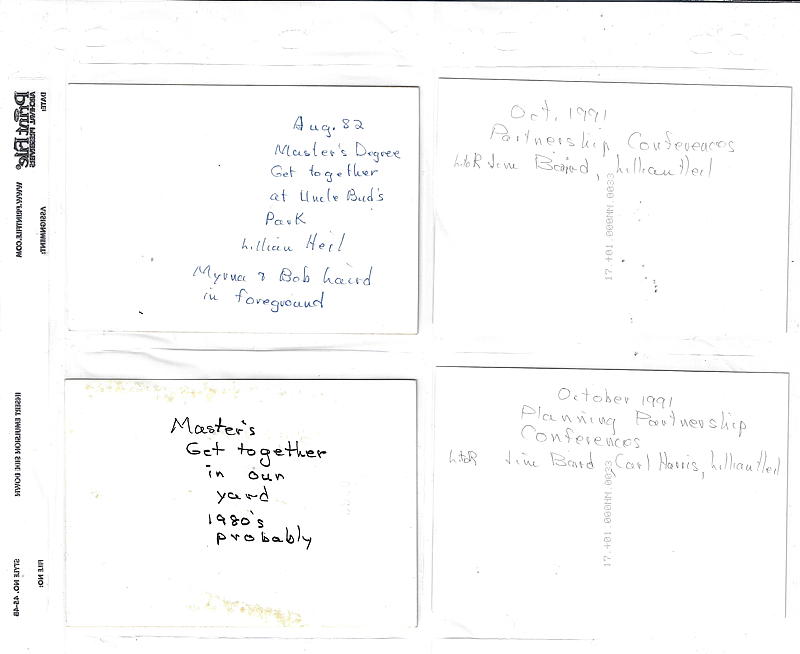 Aug. 82
Master's Degree
Get together
at Uncle Bud's
Park
Lillian Heil
Myrna & Bob Laird
in foreground
Oct. 1991
Partnership Conferences
LtoR Jim Baird, Lillian Heil
17.+01 000NNN.0033
Master's
Get together
in our
yard
1980's
probably
October 1991
Planning Partnership
Conferences
LtoR Jim Baird Carl Harris, Lillian Heil
17.+01 000NNN.0023
DATE:
ASSIGNMENT:
FILE NO:
ARCHIVAL PRESERVERS
Print File®
WWW.PRINTFILE.COM
INSERT EMULSION SIDE DOWN
STYLE NO. 45-4B